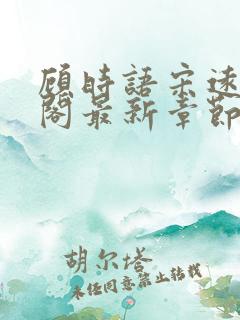 顾时語宋遠
閣最新章節
胡尔塔
未经同意禁止转载